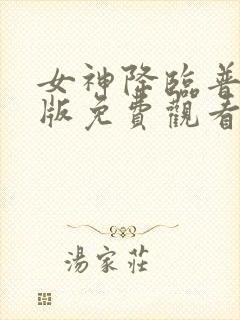 女神降臨普
版免費觀看
湯家莊